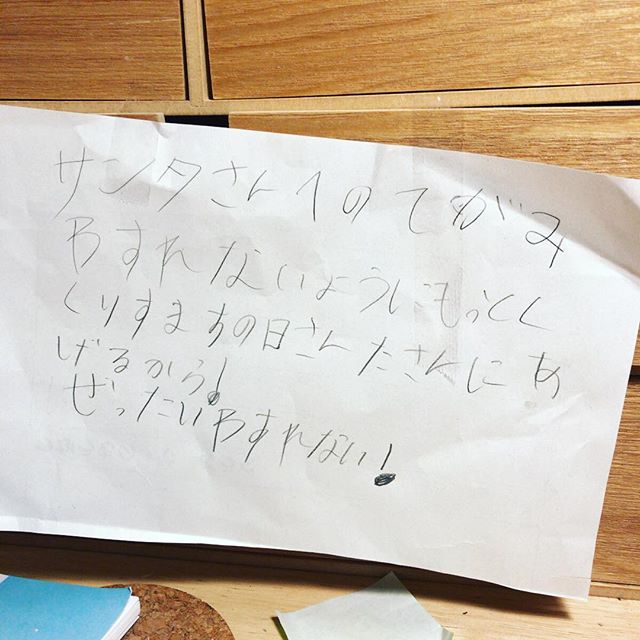 サンタさんへのてがみ
わすれないようにもっとく
くりすますの日さんたさんにあ
げるから!
ぜったいわすれない!